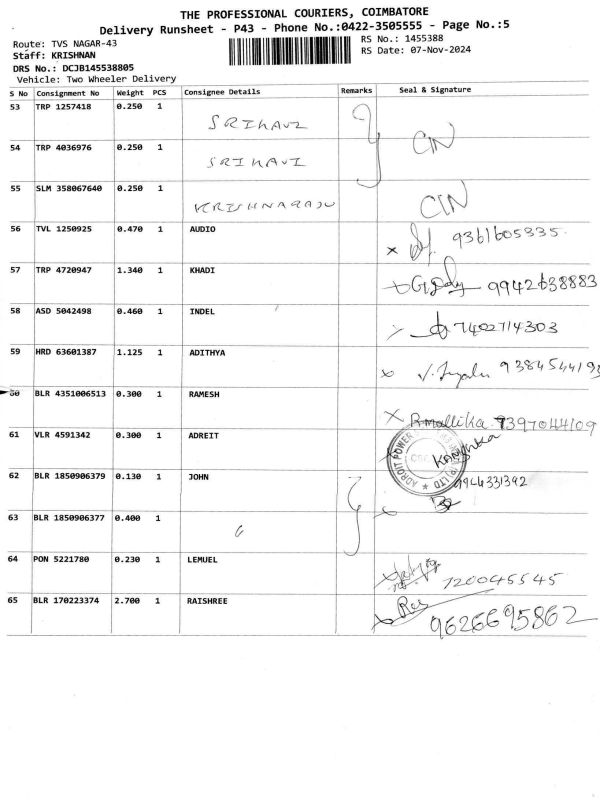 THE PROFESSIONAL COURIERS, COIMBATORE
Delivery Runsheet - P43 - Phone No.:0422-3505555 - Page No.:5
Route: TVS NAGAR-43
RS No.: 1455388
Staff: KRISHNAN
RS Date: 07-Nov-2024
DRS No.: DCJB145538805
Vehicle: Two Wheeler Delivery
S No Consignment No Weight PCS Consignee Details Remarks Seal & Signature
53 TRP 1257418 0.250 1 SRIHAVI
54 TRP 4036976 0.250 1 SRIHAVI CIN
55 SLM 358067640 0.250 1 KRISHNARAJU CIN
56 TVL 1250925 0.470 1 AUDIO 9361605335
57 TRP 4720947 1.340 1 KHADI 9942638883
58 ASD 5042498 0.460 1 INDEL 7402714303
59 HRD 63601387 1.125 1 ADITHYA 9384544193
60 BLR 4351006513 0.300 1 RAMESH R Mallika 7397044109
61 VLR 4591342 0.300 1 ADREIT Kanishka
62 BLR 1850906379 0.130 1 JOHN 9944331392
63 BLR 1850906377 0.400 1
64 PON 5221780 0.230 1 LEMUEL 720045545
65 BLR 170223374 2.700 1 RAISHREE 9626695862